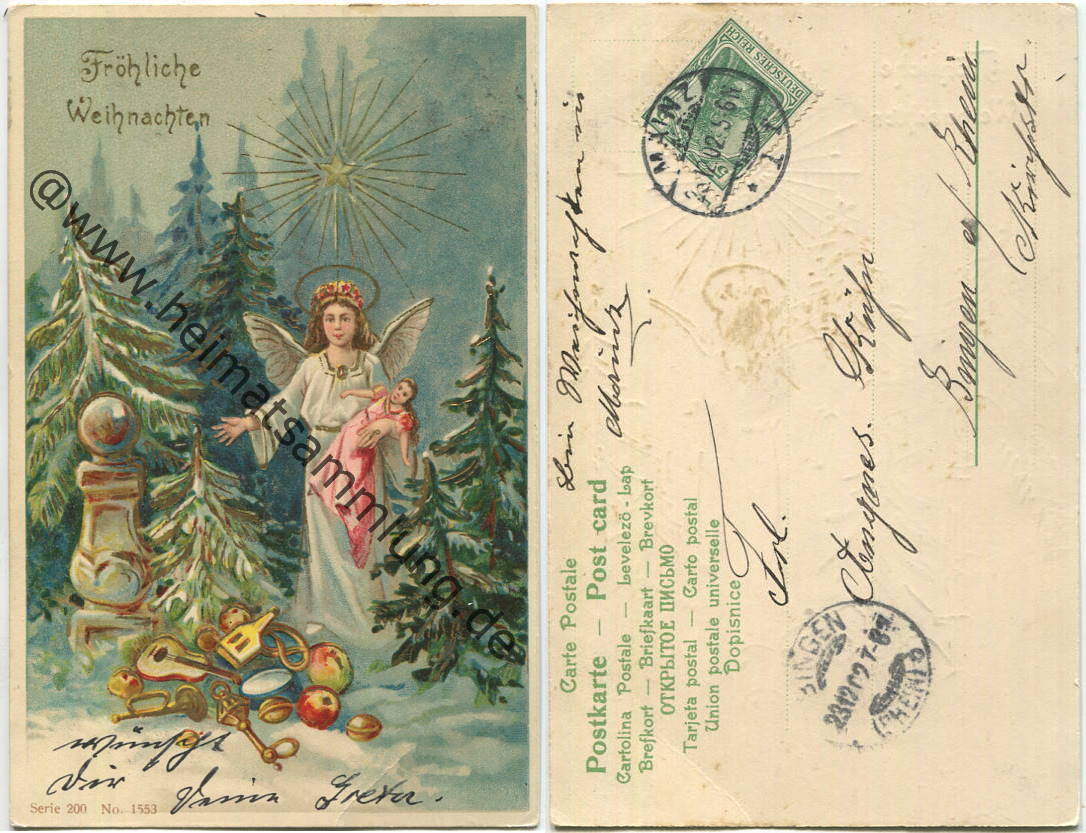 Fröhliche
Weihnachten
@www.heimatsammlung.de
wünscht
Dir Deine Greta.
Serie 200 No. 1553
DEUTSCHES REICH
MAINZ
1
Mainz
Carte Postale
Postkarte — Post card
Cartolina Postale — Levelező-Lap
Brefkort — Briefkaart — Brevkort
ОТКРЫТОЕ ПИСЬМО
Tarjeta postal — Carto postal
Union postale universelle
Dopisnice
Frl.
Agnes. Kühn
Bingen a/Rhein
BINGEN
(RHEIN)